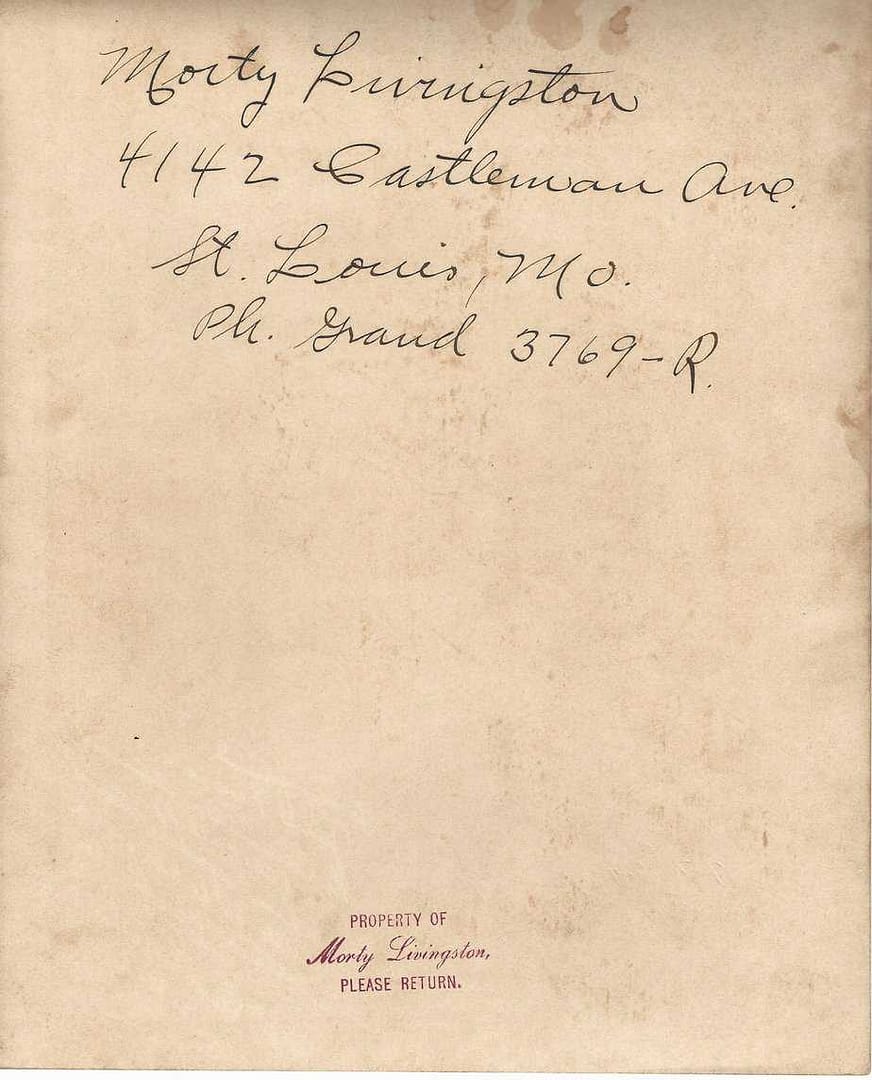 Morty Livingston
4142 Castleman Ave.
St. Louis, Mo.
Ph. Grand 3769-R.
PROPERTY OF
Morty Livingston,
PLEASE RETURN.